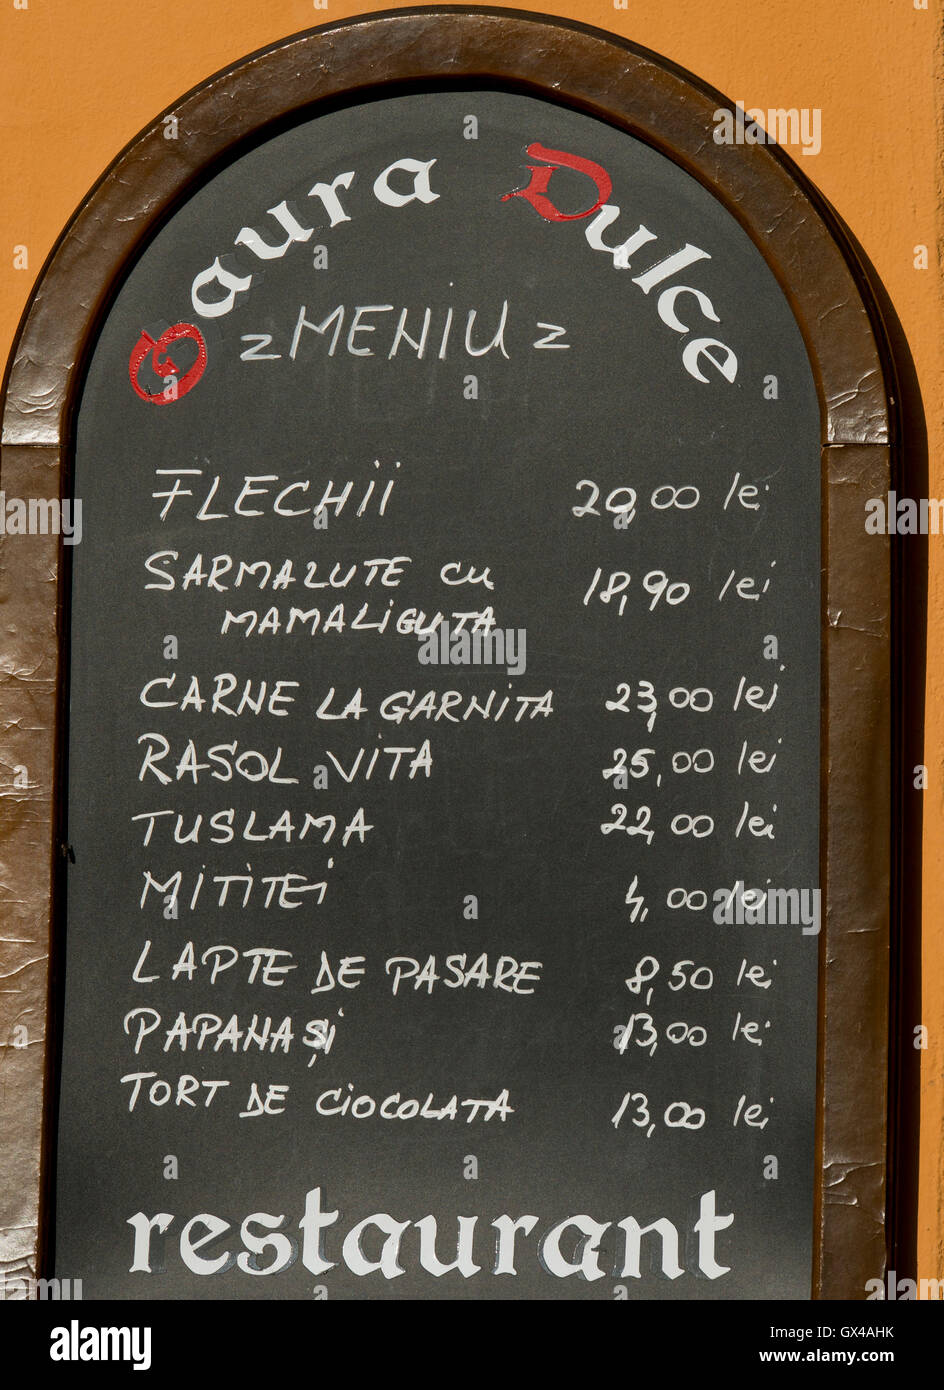 Gaura Dulce
MENIU
FLECHII 20,00 lei
SARMALUTE CU
MAMALIGUTA 18,90 lei
CARNE LA GARNITA 23,00 lei
RASOL VITA 25,00 lei
TUSLAMA 22,00 lei
MITITEI 4,00 lei
LAPTE DE PASARE 8,50 lei
PAPANAȘI 13,00 lei
TORT DE CIOCOLATA 13,00 lei
restaurant
alamy stock photo
GX4AHK
www.alamy.com